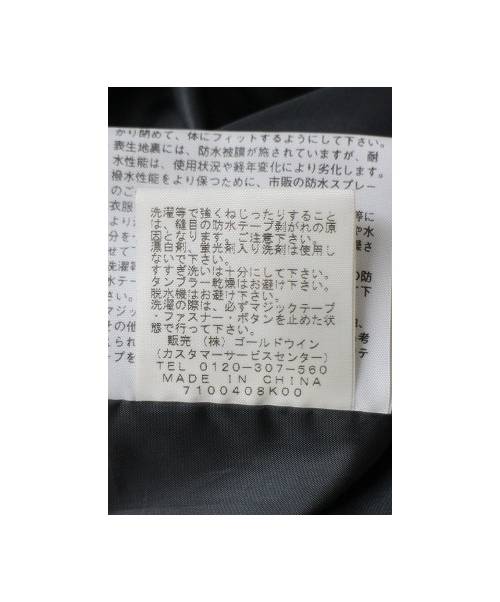 かり閉めて、体にフィットするようにして下さい。
表生地裏には、防水被膜が施されていますが、耐
水性能は、使用状況や経年変化により劣化します。
撥水性能をより保つために、市販の防水スプレー
のご
衣服
より
分を
せて
洗濯等
水テー
さい。
マジッ
その他
えられ
ープを
洗濯等で強くねじったりすること
は、縫目の防水テープ剥がれの原
因となります。ご注意下さい。
漂白剤、蛍光剤入り洗剤は使用し
ないで下さい。
すすぎ洗いは十分にして下さい。
タンブラー乾燥はお避け下さい。
脱水機はお避け下さい。
洗濯の際は、必ずマジックテープ
・ファスナー・ボタンを止めた状
態で行って下さい。
販売 (株) ゴールドウイン
(カスタマーサービスセンター)
TEL 0120-307-560
MADE IN CHINA
7100408K00
等に
や水
さ
の防
下
考
テ